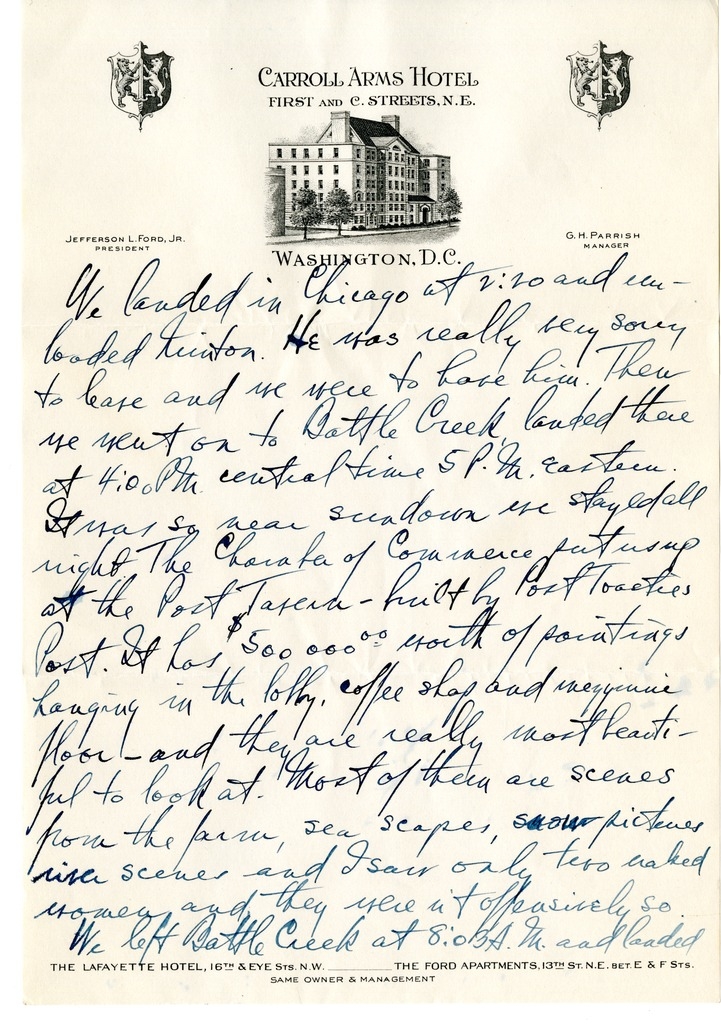 CARROLL ARMS HOTEL
FIRST AND C. STREETS, N.E.
JEFFERSON L. FORD, JR.
PRESIDENT
G. H. PARRISH
MANAGER
WASHINGTON, D.C.
We landed in Chicago at 2:20 and un-
loaded Minton. He was really very sorry
to leave and we were to have him. Then
we went on to Battle Creek, landed there
at 4:00 P.M. central time 5 P.M. eastern.
It was so near sundown we stayed all
night. The Chamber of Commerce put us up
at the Post Tavern - built by Post Toasties
Post. It has $500 000 00 worth of paintings
hanging in the lobby, coffee shop and mezzinine
floor - and they are really most beauti-
ful to look at. Most of them are scenes
from the farm, sea scapes, snow pictures
river scenes and I saw only two naked
women and they weren't offensively so.
We left Battle Creek at 8:03 A.M. and landed
THE LAFAYETTE HOTEL, 16TH & EYE STS. N.W. THE FORD APARTMENTS, 13TH ST. N.E. BET. E & F STS.
SAME OWNER & MANAGEMENT